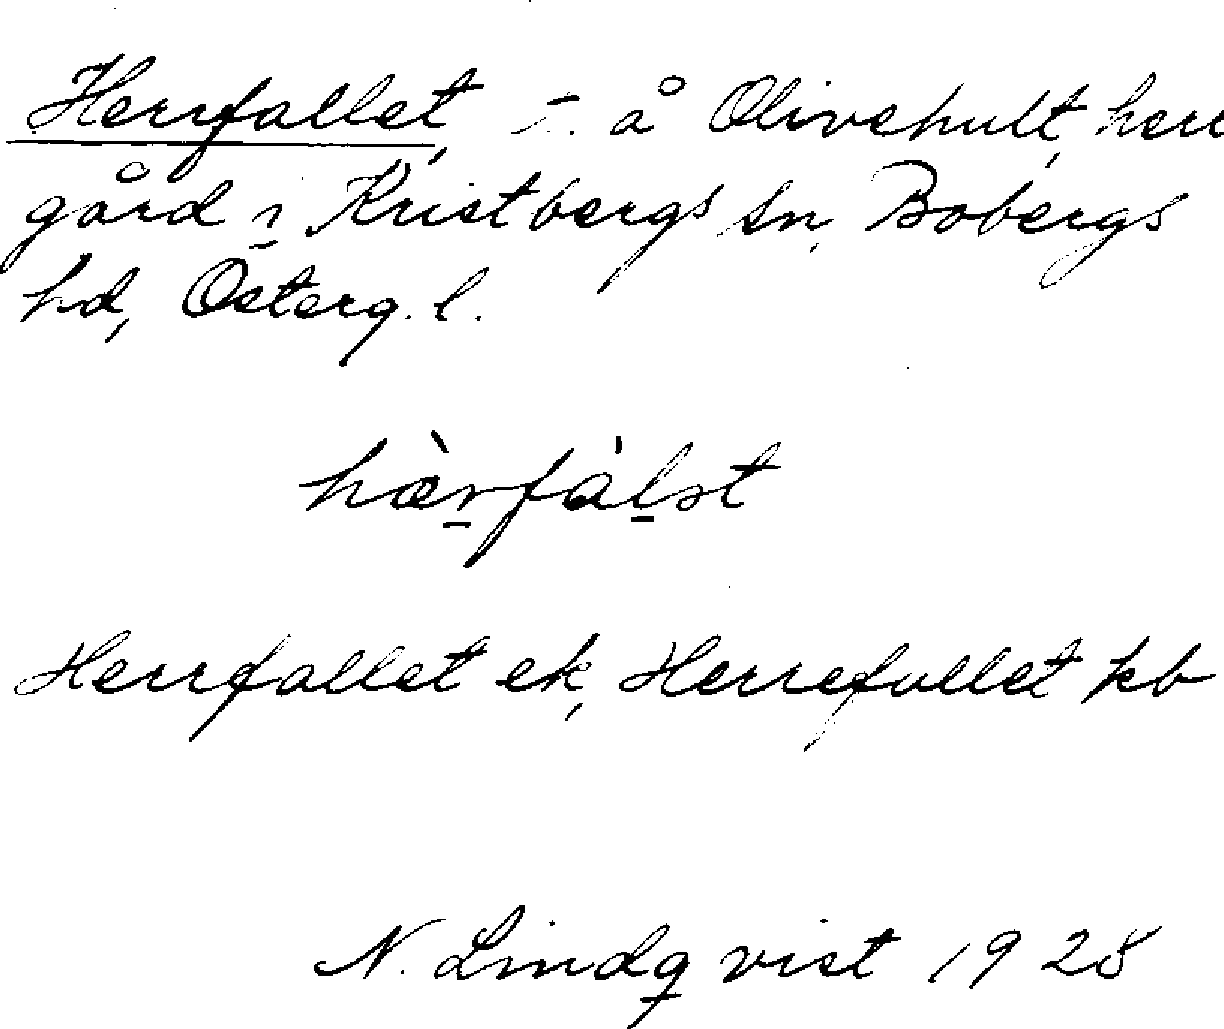 Herrfallet, t. å Olivehult, herr
gård i Kristbergs sn, Bobergs
hd, Österg. l.
hærfàlst
Herrfallet ek, Herrefallet kb
N. Lindqvist 1928